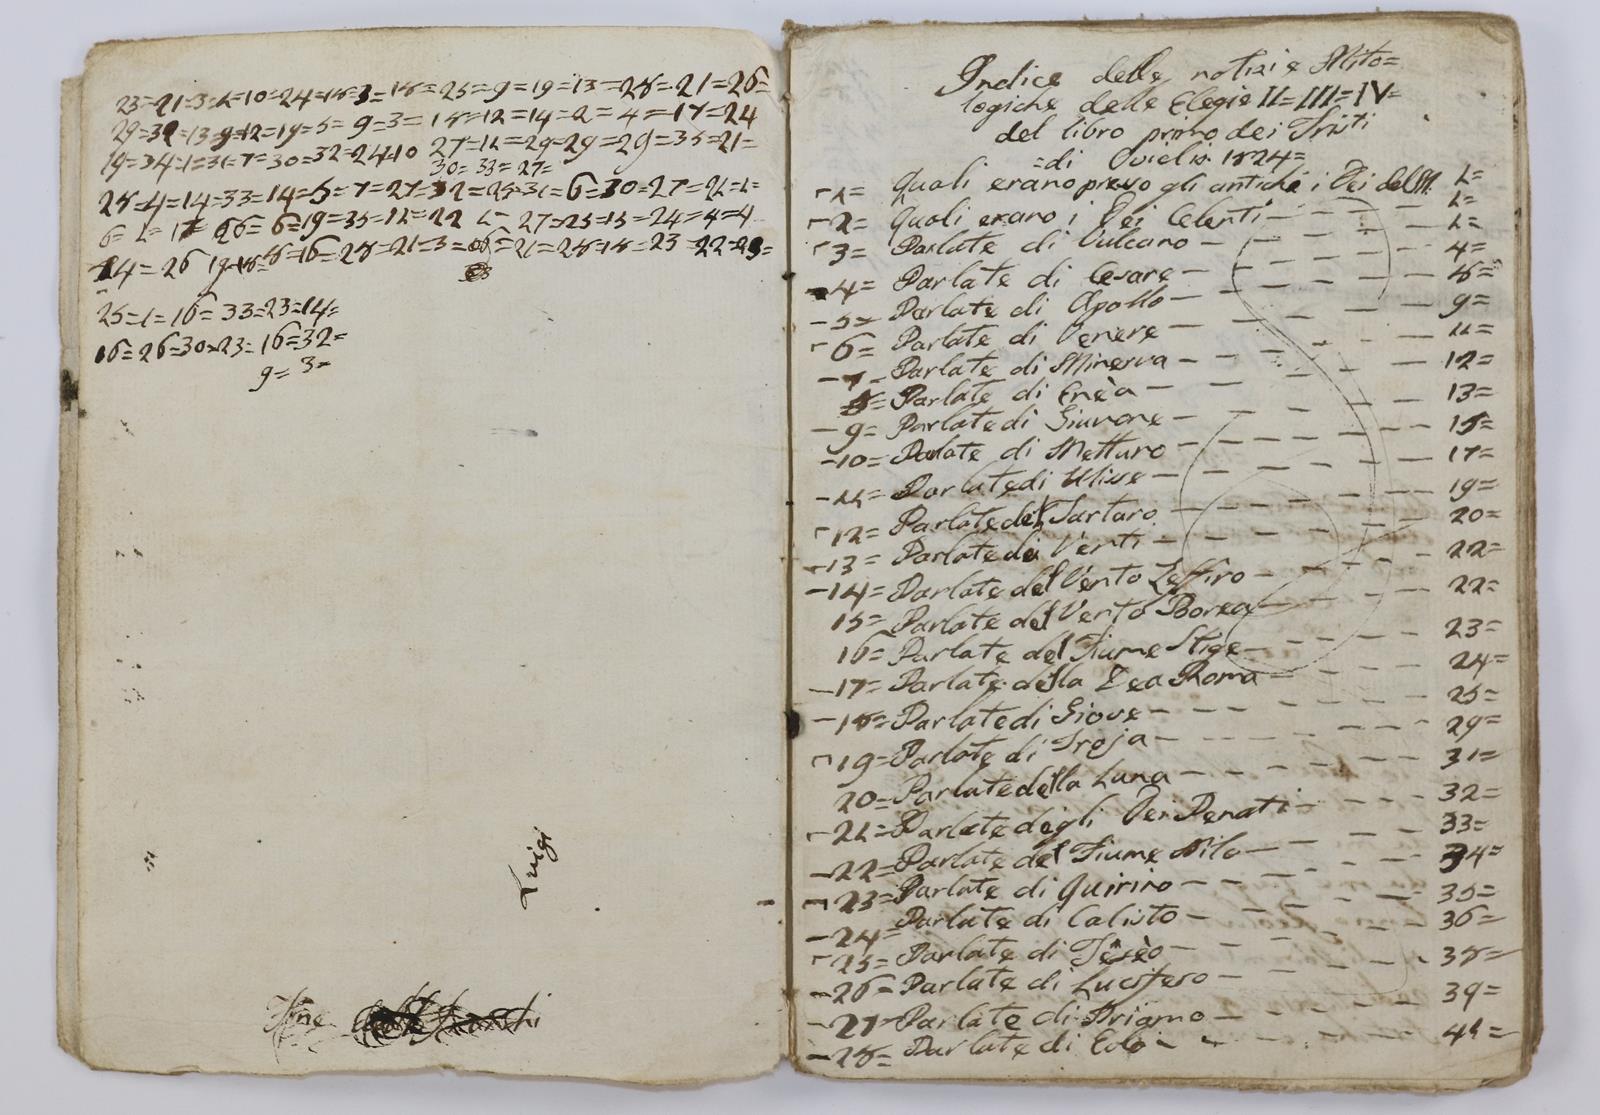 23=21=3=1=10=24=18=3=18=25=9=19=13=28=21=26=
29=32=13=9=12=19=5=9=3=18=12=14=2=4=17=24
19=34=1=31=7=30=32=24=10 27=11=29=29=29=35=21=
30=33=27=
28=4=14=33=14=5=7=27=32=25=31=6=30=27=21=1=
6=1=17 26=6=19=35=12=22 1=27=25=15=24=4=4
14=26 19=18=8=16=28=21=3= =21=28=18=23=22=23=
25=1=16=33=23=14=
16=26=30=23=16=32=
9=3=
Luigi
Fine
Indice delle notizie Mito=
logiche delle Elegie II=III=IV=
del libro primo dei Tristi
=di Ovidio 1824=
1= Quali erano presso gli antichi i Dei del M. 1=
2= Quali erano i Dei Celenti 1=
3= Parlate di Vulcano 1=
4= Parlate di Cesare 4=
5= Parlate di Apollo 8=
6= Parlate di Venere 9=
7= Parlate di Minerva 11=
8= Parlate di Enèa 12=
9= Parlate di Giunone 13=
10= Parlate di Netturo 15=
11= Parlate di Ulisse 17=
12= Parlate del Tartaro 19=
13= Parlate dei Venti 20=
14= Parlate del Vento Zeffiro 22=
15= Parlate del Vento Borea 22=
16= Parlate del Fiume Stige 23=
17= Parlate della Dea Roma 24=
18= Parlate di Giove 25=
19= Parlate di Troja 29=
20= Parlate della Luna 31=
21= Parlate degli Dei Penati 32=
22= Parlate del Fiume Nilo 33=
23= Parlate di Quirino 34=
24= Parlate di Calisto 35=
25= Parlate di Tesèo 36=
26= Parlate di Lucifero 38=
27= Parlate di Priamo 39=
28= Parlate di Eolo 41=